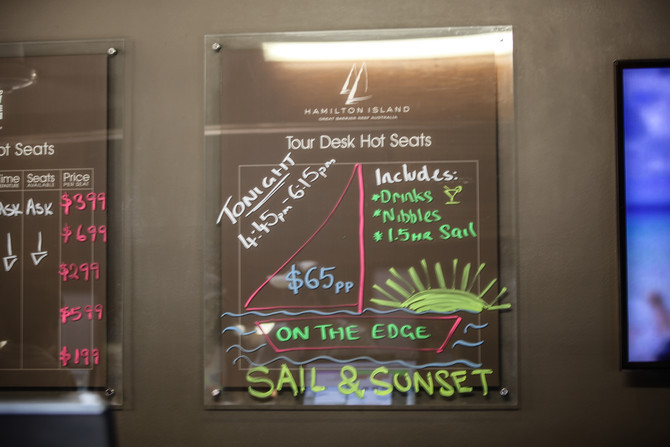 ot Seats
Time Seats Price
AVAILABLE PER SEAT
ASK ASK $399
$699
$299
$599
$199
HAMILTON ISLAND
GREAT BARRIER REEF AUSTRALIA
Tour Desk Hot Seats
TONIGHT
4:45pm-6:15pm
Includes:
*Drinks
*Nibbles
*1.5HR Sail
$65pp
ON THE EDGE
SAIL & SUNSET